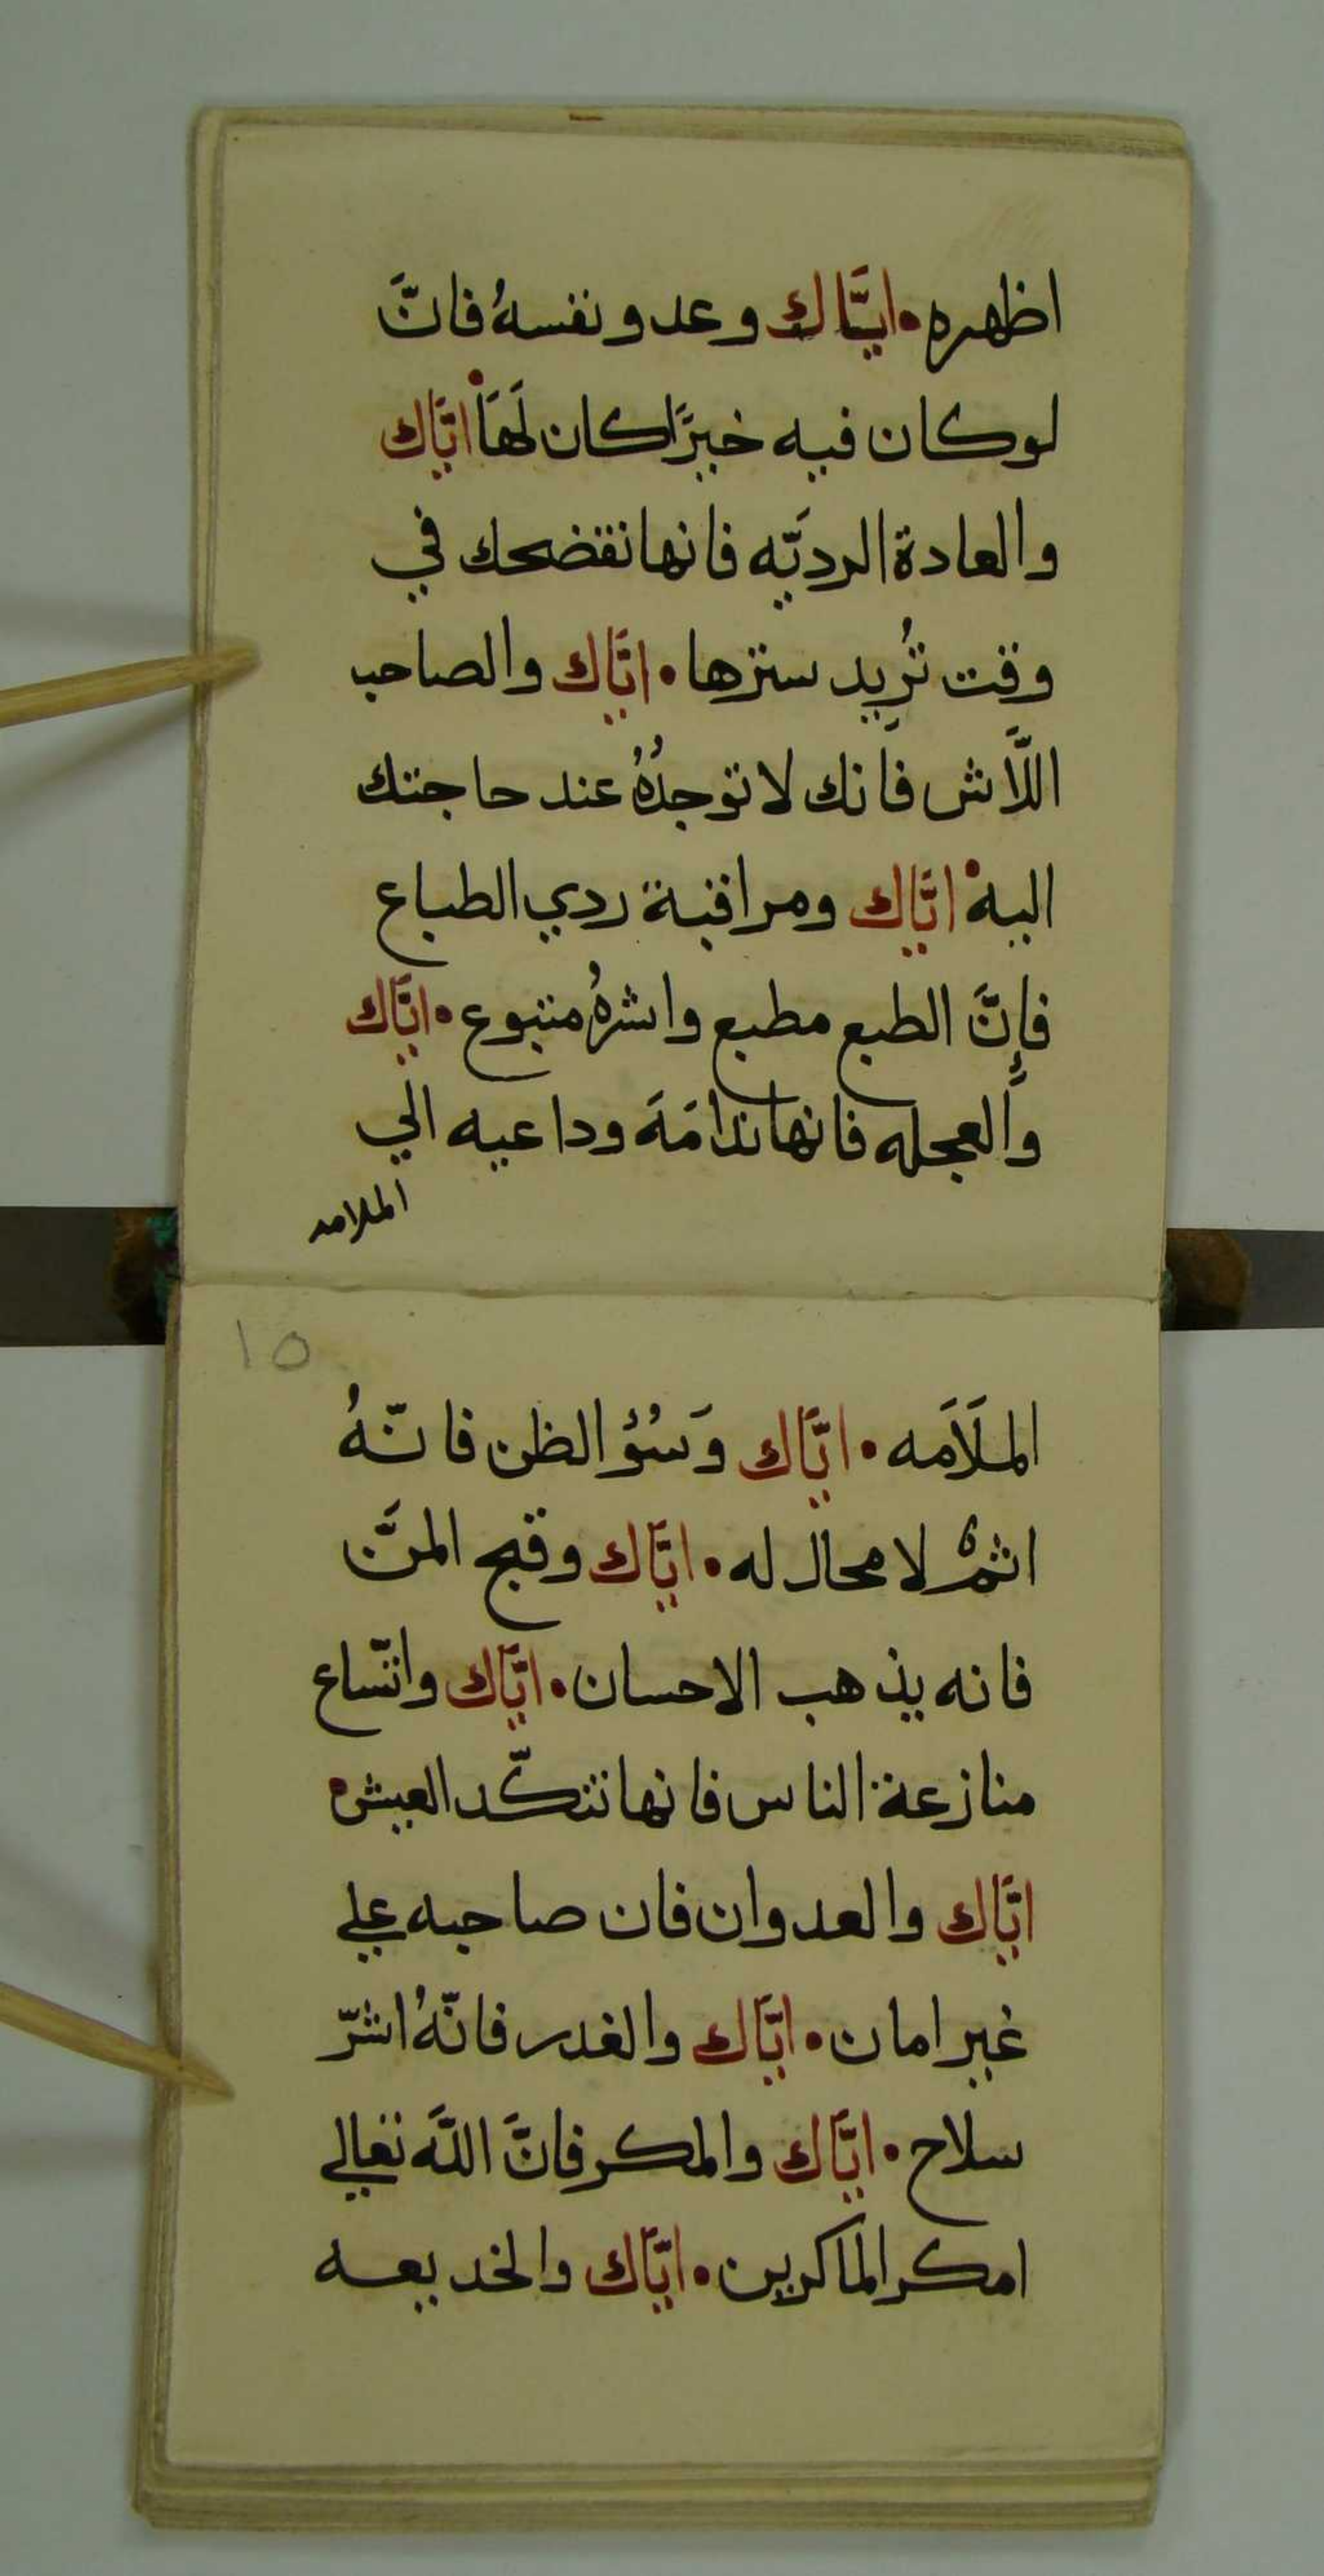 اظهره • ايَّاك وعدو نفسهُ فانَّ
لوكان فيه خيرًا كان لَهَا • ايَّاك
والعادة الرديَّه فانها تفضحك في
وقت تُريد سترها • ايَّاك والصاحب
اللَّاش فانك لا توجدُهُ عند حاجتك
اليه • ايَّاك ومراقبة ردي الطباع
فإنَّ الطبع مطبع واشرهُ متبوع • ايَّاك
والعجله فانها ندامَهَ وداعيه الي
الملامه
١٥
الملَامَه • ايَّاك وَسُؤ الظن فانّهُ
اثمٌ لا محال له • ايَّاك وقبح المنَّ
فانه يذهب الاحسان • ايَّاك واتّساع
منازعة الناس فانها تنكّد العيش •
ايَّاك والعدوان فان صاحبه علي
غير امان • ايَّاك والغدر فانّهُ اشرّ
سلاح • ايَّاك والمكر فانَّ اللَّه تعالي
امكر الماكرين • ايَّاك والخديعه